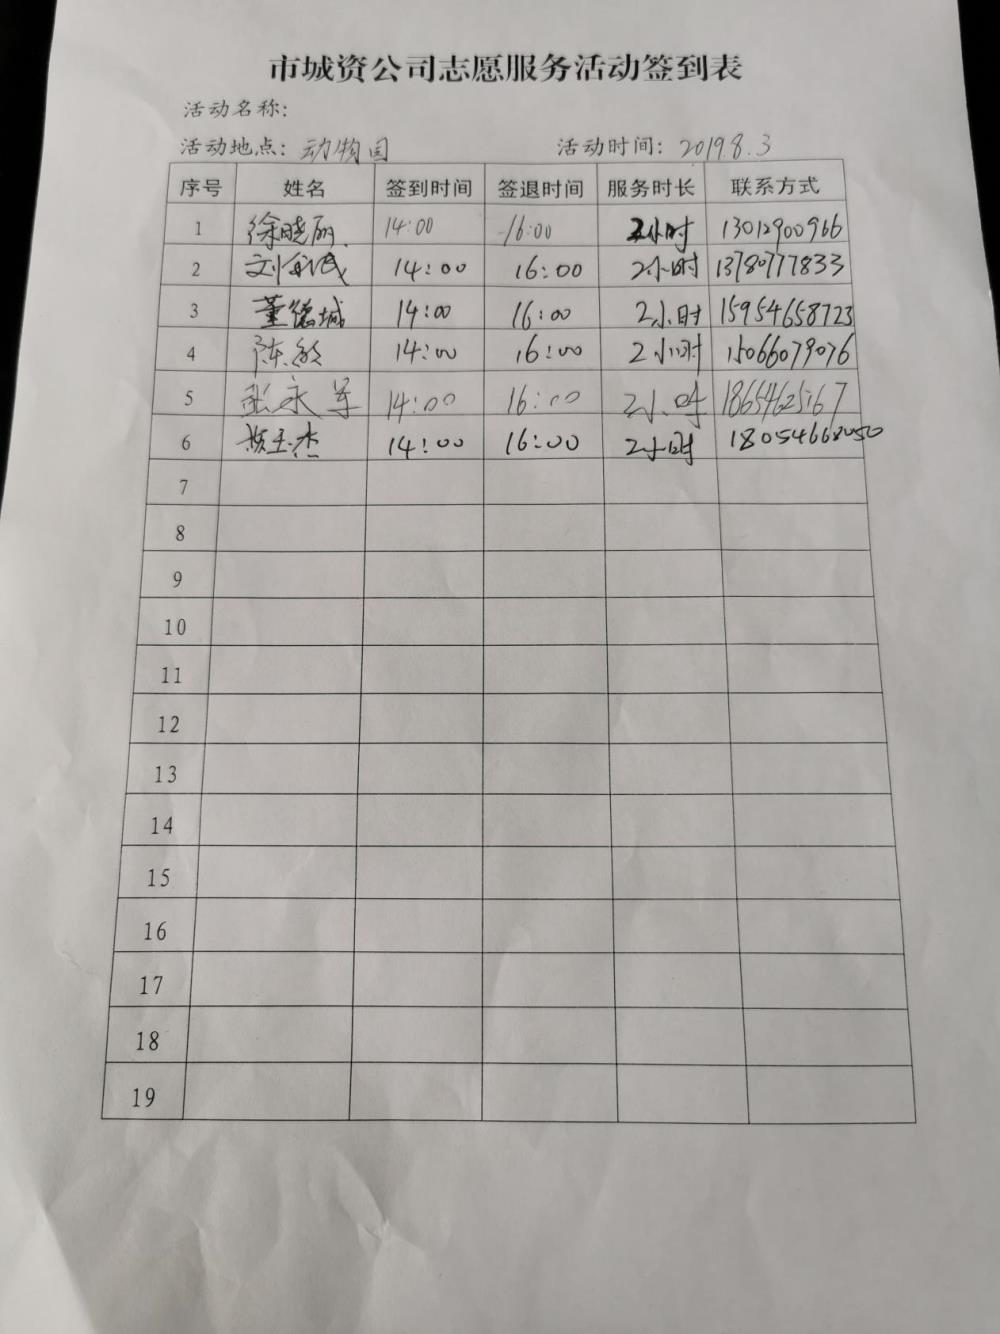 市城资公司志愿服务活动签到表
活动名称:
活动地点: 动物园 活动时间: 2019.8.3
序号 姓名 签到时间 签退时间 服务时长 联系方式
1 徐晓丽 14:00 16:00 2小时 13012900966
2 14:00 16:00 2小时 13780777833
3 董德城 14:00 16:00 2小时 15954658723
4 陈敏 14:00 16:00 2小时 15066079076
5 张永军 14:00 16:00 2小时 18654625167
6 14:00 16:00 2小时 18054668050
7
8
9
10
11
12
13
14
15
16
17
18
19